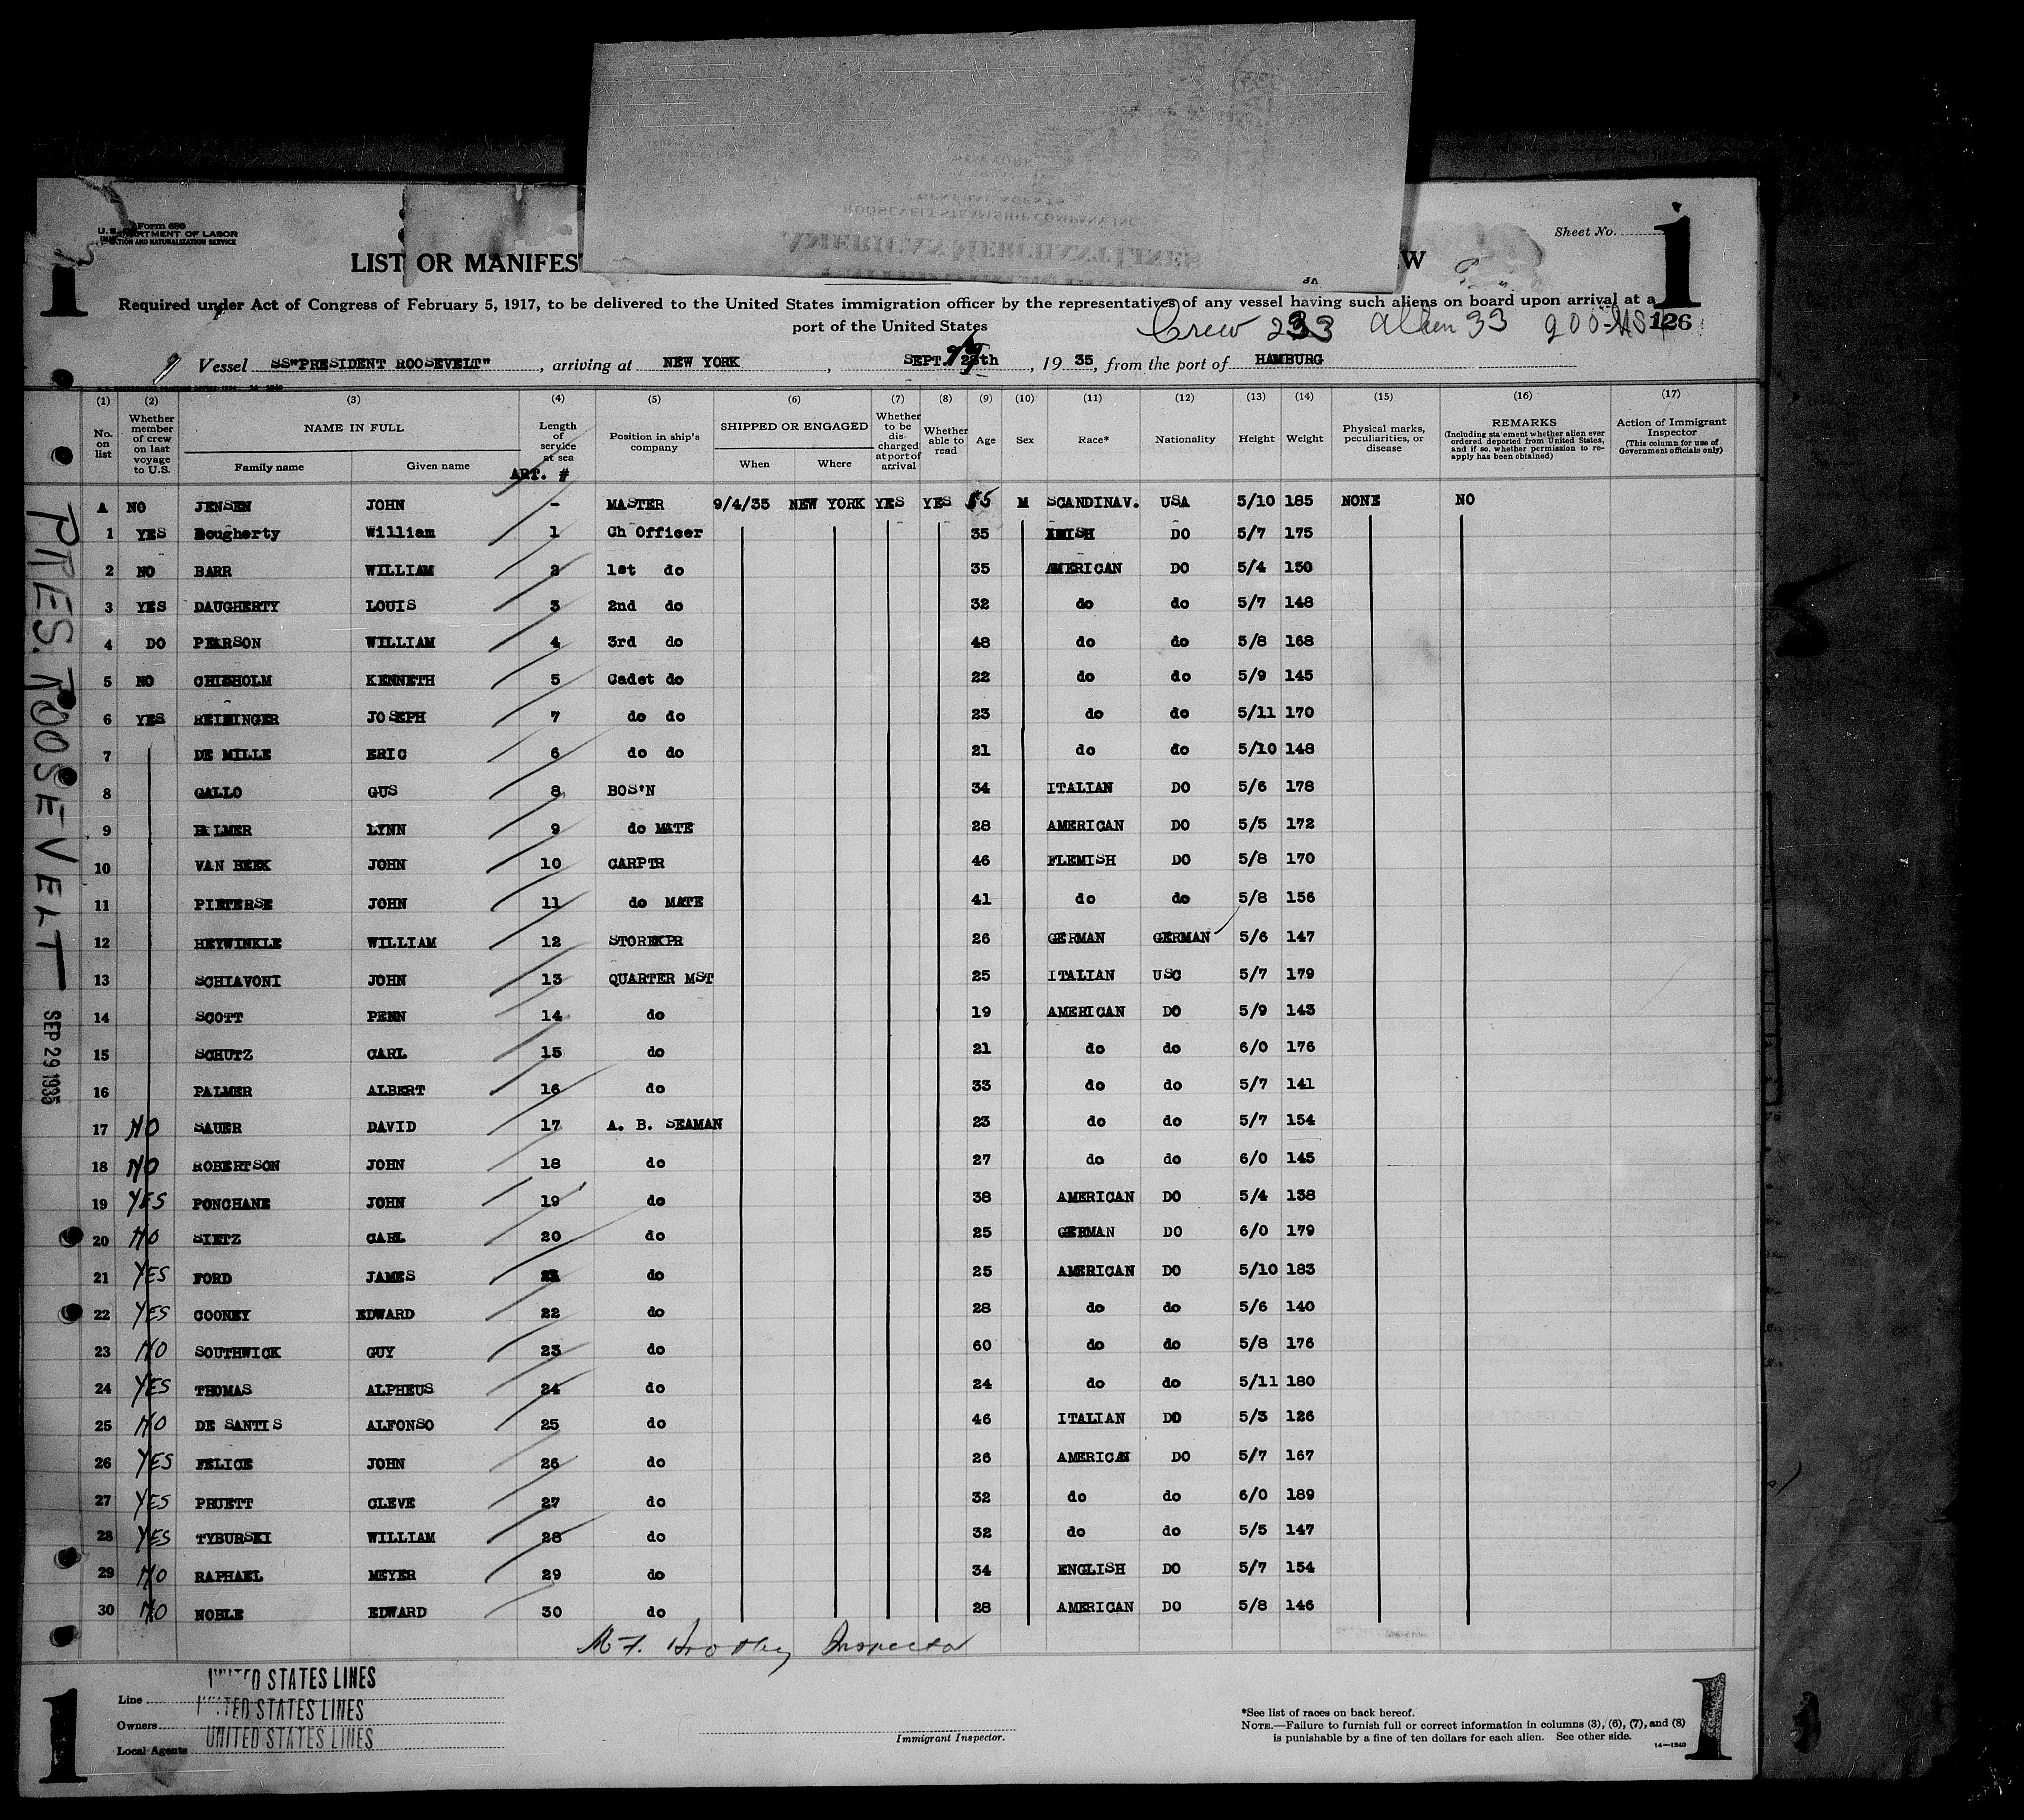 Form 680
U. S. DEPARTMENT OF LABOR
IMMIGRATION AND NATURALIZATION SERVICE
Sheet No.
1
1
LIST OR MANIFEST
W
Required under Act of Congress of February 5, 1917, to be delivered to the United States immigration officer by the representatives of any vessel having such aliens on board upon arrival at a
port of the United States
Crew 233 Alien 33 200-USC 126
Vessel SS"PRESIDENT ROOSEVELT", arriving at NEW YORK, SEPT. 28th, 1935, from the port of HAMBURG
(1) (2) (3) (4) (5) (6) (7) (8) (9) (10) (11) (12) (13) (14) (15) (16) (17)
No. on list
Whether member of crew on last voyage to U.S.
NAME IN FULL
Family name Given name
Length of service at sea
ART. #
Position in ship's company
SHIPPED OR ENGAGED
When Where
Whether to be discharged at port of arrival
Whether able to read
Age Sex Race* Nationality Height Weight
Physical marks, peculiarities, or disease
REMARKS
(Including statement whether alien ever ordered deported from United States, and if so, whether permission to reapply has been obtained)
Action of Immigrant Inspector
(This column for use of Government officials only)
A NO JENSEN JOHN - MASTER 9/4/35 NEW YORK YES YES 55 M SCANDINAV. USA 5/10 185 NONE NO
1 YES Dougherty William 1 Ch Officer 35 IRISH DO 5/7 175
2 NO BARR WILLIAM 2 1st do 35 AMERICAN DO 5/4 150
3 YES DAUGHERTY LOUIS 3 2nd do 32 do do 5/7 148
4 DO PEARSON WILLIAM 4 3rd do 48 do do 5/8 168
5 NO CHISHOLM KENNETH 5 Cadet do 22 do do 5/9 145
6 YES REININGER JOSEPH 7 do do 23 do do 5/11 170
7 DE MILLE ERIC 6 do do 21 do do 5/10 148
8 GALLO GUS 8 BOS'N 34 ITALIAN DO 5/6 178
9 PALMER LYNN 9 do MATE 28 AMERICAN DO 5/5 172
10 VAN BEEK JOHN 10 CARPTR 46 FLEMISH DO 5/8 170
11 PIETERSE JOHN 11 do MATE 41 do do 5/8 156
12 HEYWINKLE WILLIAM 12 STOREKPR 26 GERMAN GERMAN 5/6 147
13 SCHIAVONI JOHN 13 QUARTER MST 25 ITALIAN USC 5/7 179
14 SCOTT PENN 14 do 19 AMERICAN DO 5/9 143
15 SCHUTZ CARL 15 do 21 do do 6/0 176
16 PALMER ALBERT 16 do 33 do do 5/7 141
17 NO SAUER DAVID 17 A. B. SEAMAN 23 do do 5/7 154
18 NO ROBERTSON JOHN 18 do 27 do do 6/0 145
19 YES PONCHANE JOHN 19 do 38 AMERICAN DO 5/4 138
20 NO SIETZ CARL 20 do 25 GERMAN DO 6/0 179
21 YES FORD JAMES 21 do 25 AMERICAN DO 5/10 183
22 YES COONEY EDWARD 22 do 28 do do 5/6 140
23 NO SOUTHWICK GUY 23 do 60 do do 5/8 176
24 YES THOMAS ALPHEUS 24 do 24 do do 5/11 180
25 NO DE SANTIS ALFONSO 25 do 46 ITALIAN DO 5/3 126
26 YES FELICE JOHN 26 do 26 AMERICAN DO 5/7 167
27 YES PRUETT CLEVE 27 do 32 do do 6/0 189
28 YES TYBURSKI WILLIAM 28 do 32 do do 5/5 147
29 NO RAPHAEL MEYER 29 do 34 ENGLISH DO 5/7 154
30 NO NOBLE EDWARD 30 do 28 AMERICAN DO 5/8 146
PRES. ROOSEVELT
SEP 29 1935
Inspector
Line UNITED STATES LINES
Owners UNITED STATES LINES
Local Agents UNITED STATES LINES
Immigrant Inspector.
*See list of races on back hereof.
NOTE.—Failure to furnish full or correct information in columns (3), (6), (7), and (8)
is punishable by a fine of ten dollars for each alien. See other side.
14—1240
1
1